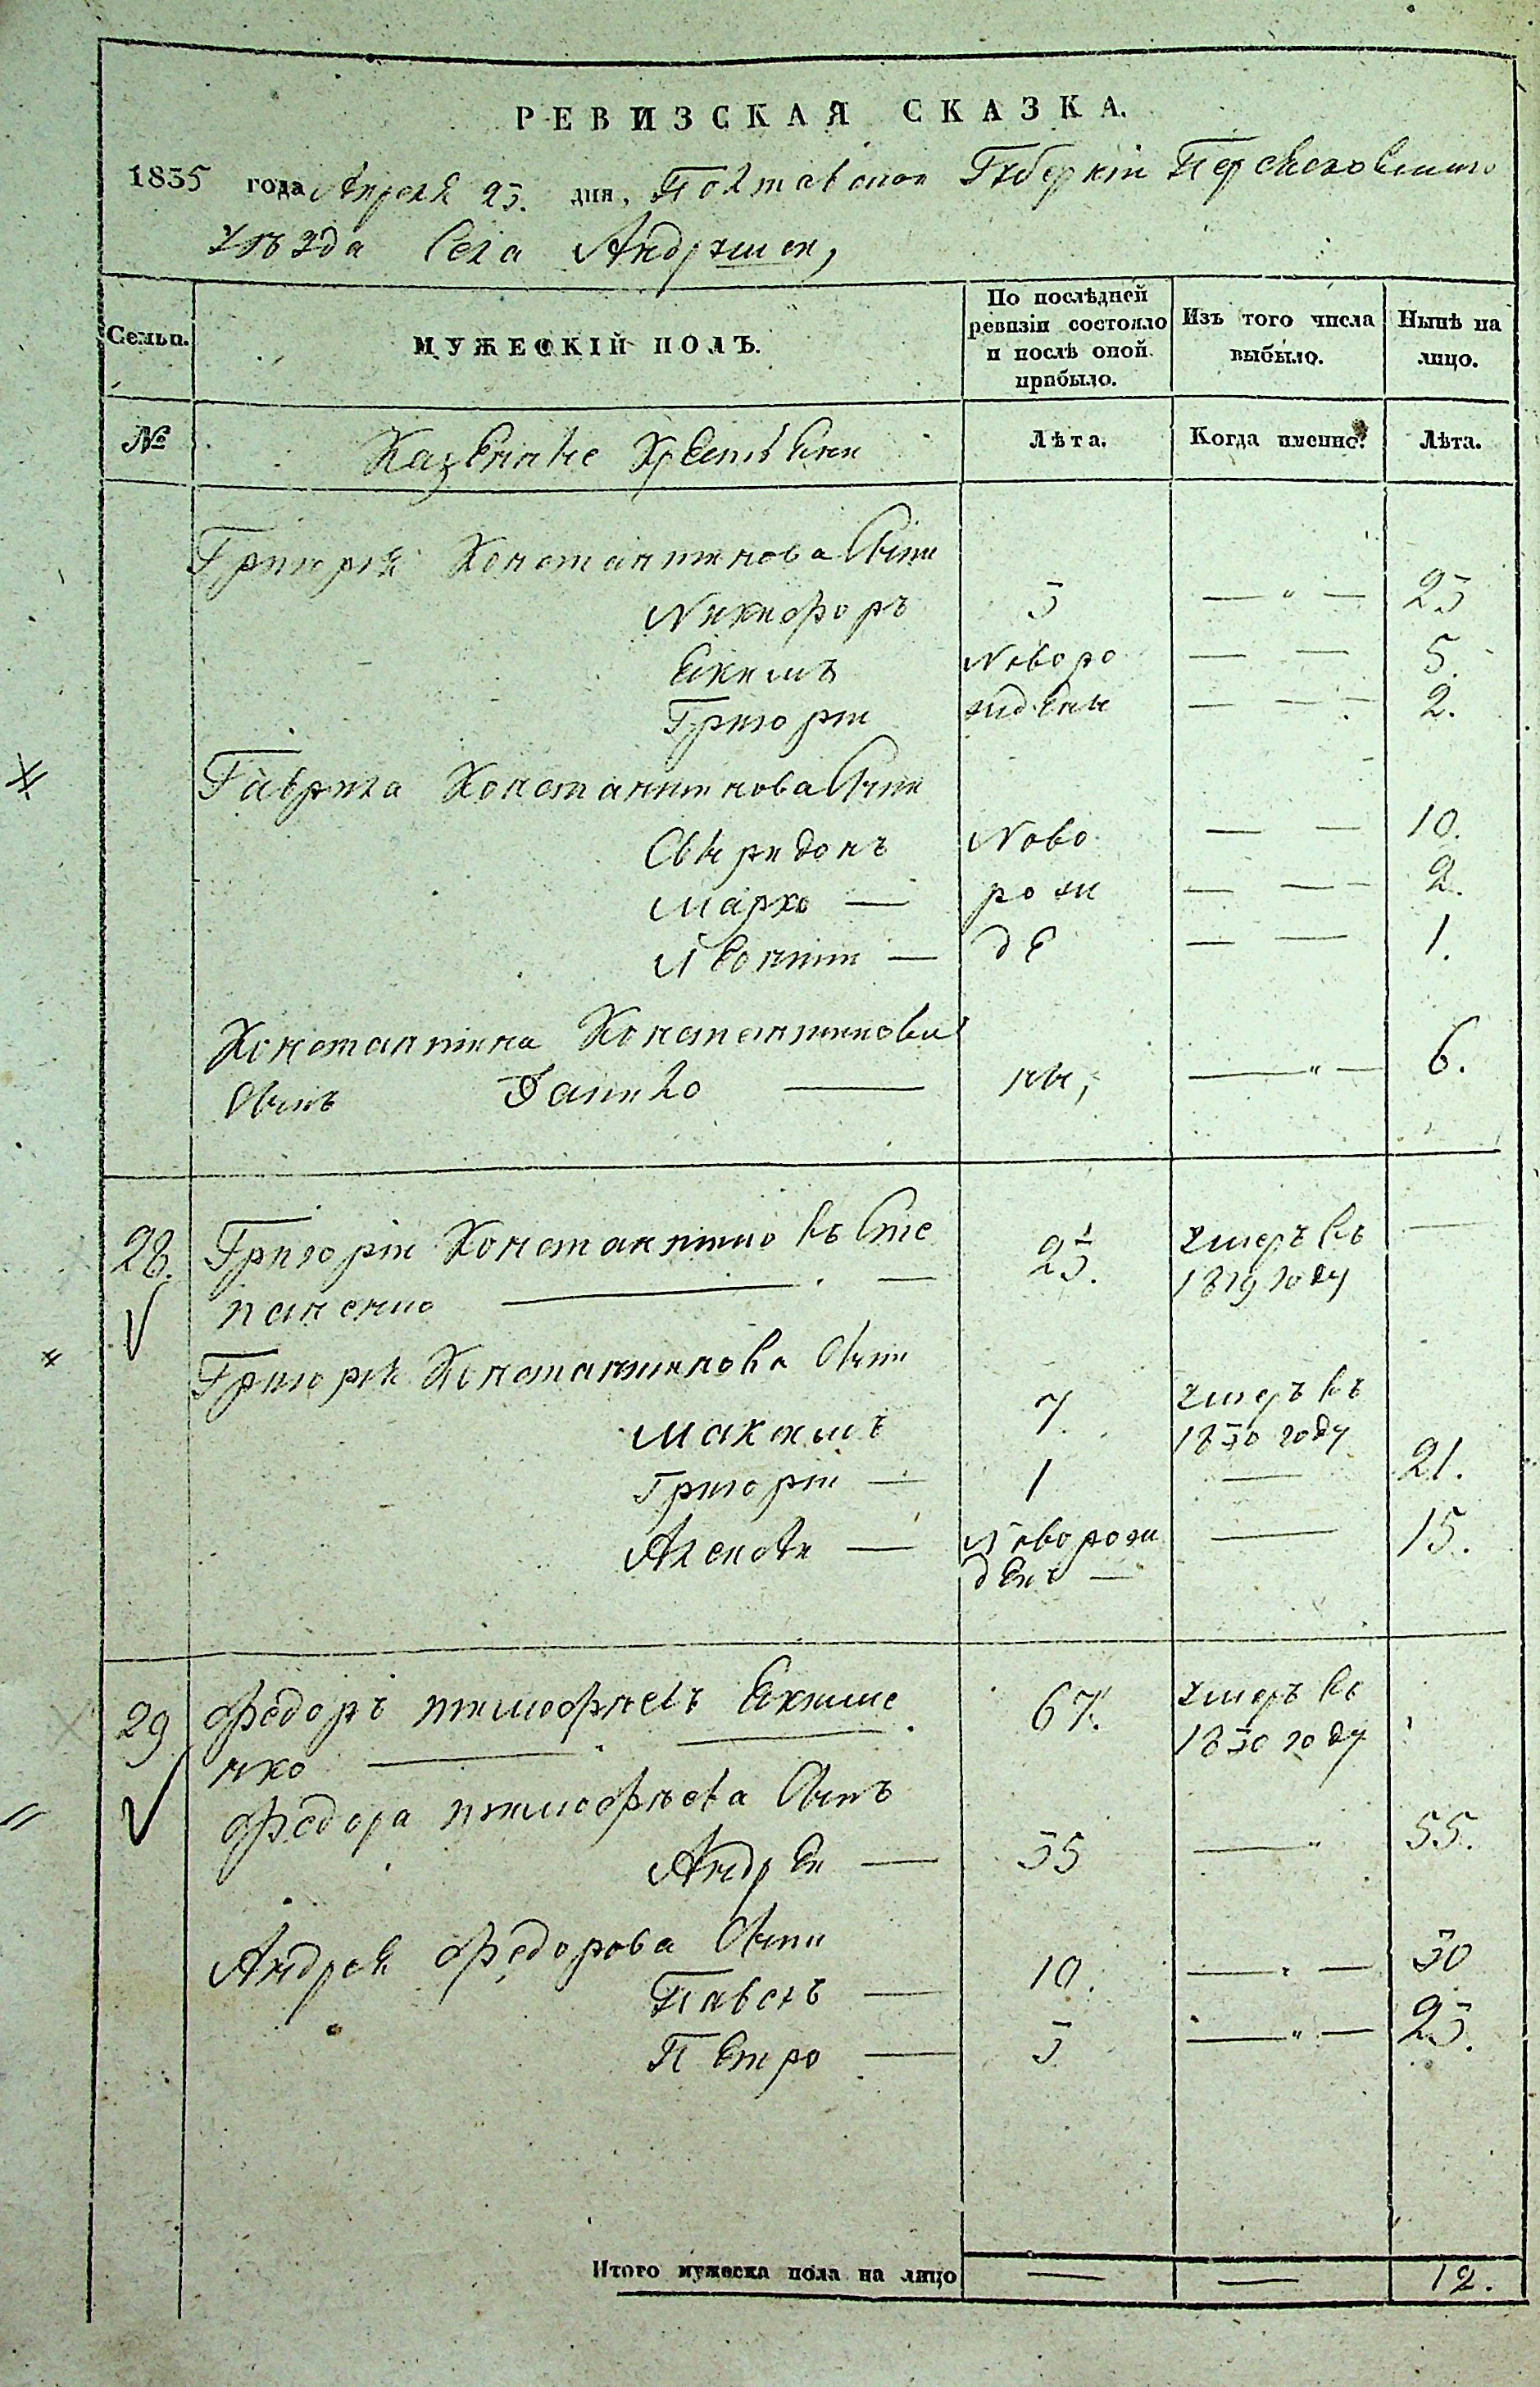 РЕВИЗСКАЯ СКАЗКА.
1835 года Апреля 23. дня, Полтавской Губернiи Переясловскаго
уѣзда Села Андрушок,
Семьи. МУЖЕСКІЙ ПОЛЪ. По послѣдней ревизіи состояло и послѣ оной прибыло. Изъ того числа выбыло. Нынѣ на лицо.
№ Казенные Крестьяни Лѣта. Когда именно. Лѣта.
Григорія Константинова Сыни
Никифоръ 3 — „ — 23
Екимъ Новоро — — 5.
Григорій жденны — — 2.
Гаврила Константинова Сыни
Свыридонъ Ново — — 10.
Марко — рож — — 2.
Леонтій — де — — 1.
Константина Константинова
Сынъ Данило — ны, — „ — 6.
28. Григорій Константиновъ Сте 23. умеръ въ —
паненко — 1819 году
Григорія Константинова Сыни
Максимъ 7 умеръ въ
1830 году
Григорій — 1 — 21.
Алексѣй — Новорож — 15.
денъ —
29 Федоръ тимофѣевъ Екиме 67. умеръ въ
нко — 1830 году
Федора тимофѣева Сынъ
Андрей — 35 — „ 55.
Андрея Федорова Сыни
Павелъ — 10. — „ — 30
Петро — 3 — „ — 23.
Итого мужеска пола на лицо — — 12.